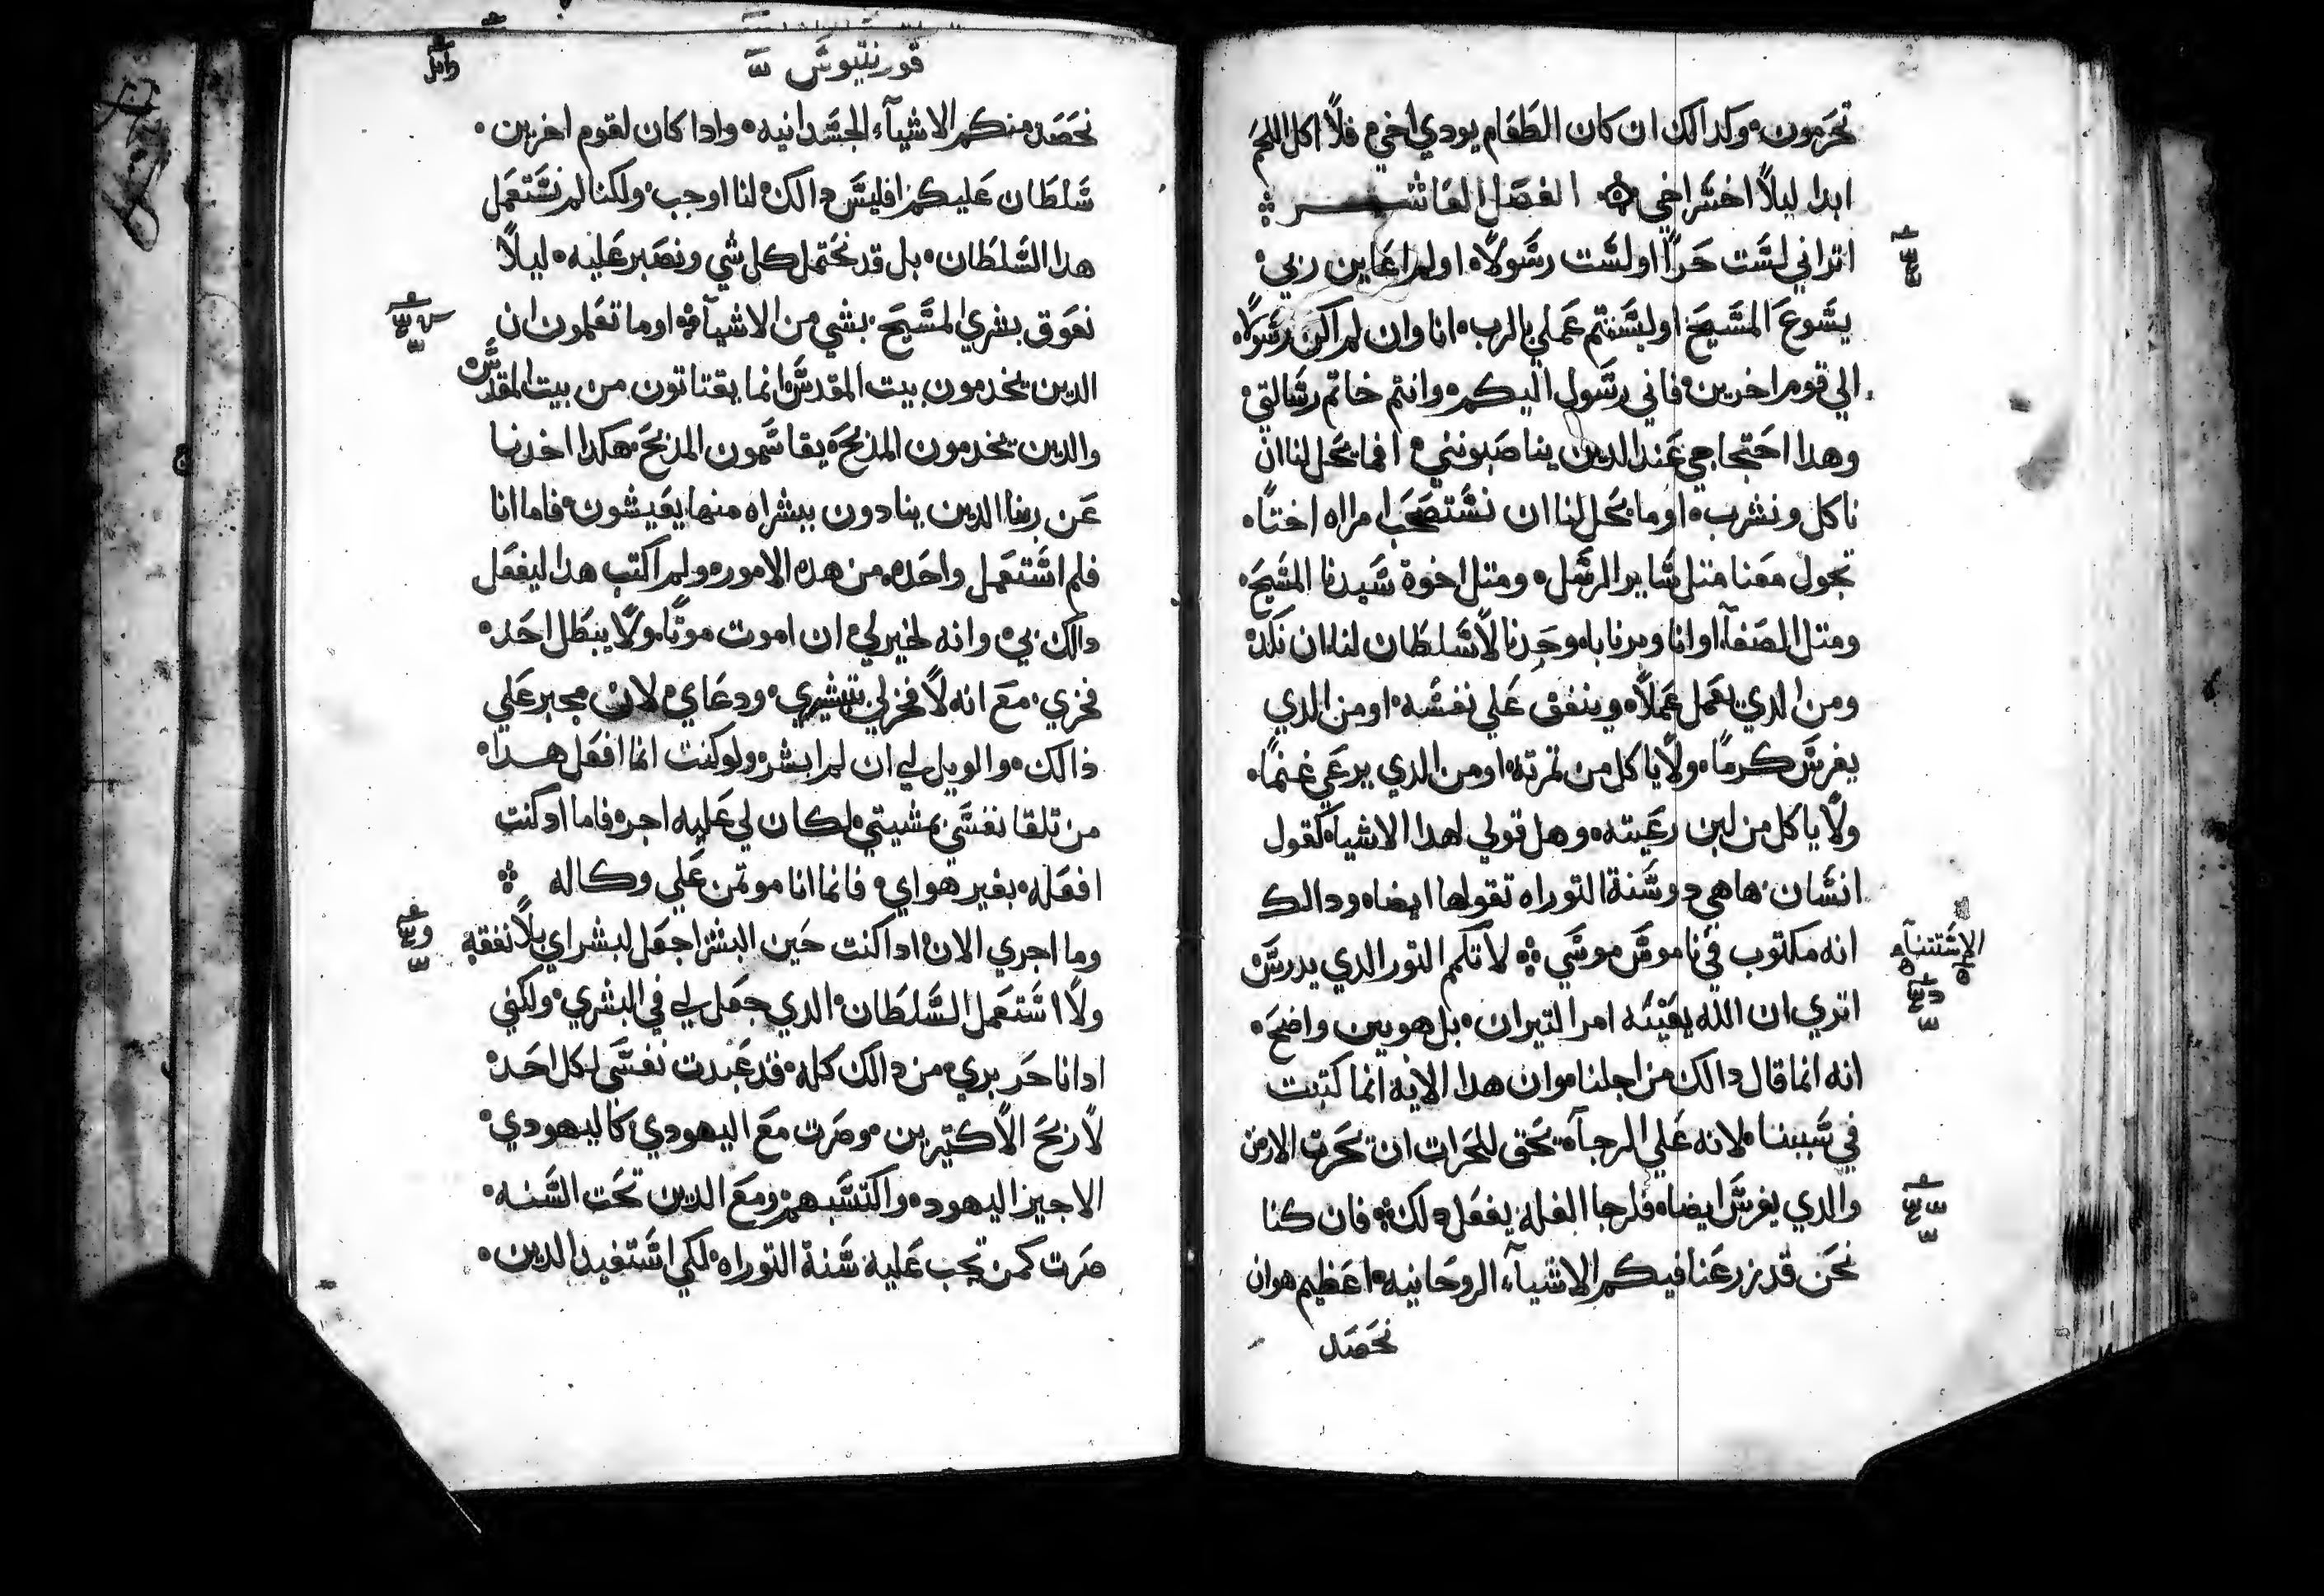 تجرمون وكدالك ان كان الطعام يودي اخي فلا اكل اللحم
ابدا ليلا اختر اخي الفصل العاشر
اتراني لست حرا اولست رسولا اولم اعاين ربي
يسوع المسيح اولستم عملي بالرب انا وان لم اكن رسولا
الي قوم اخرين فاني رسول اليكم وانتم خاتم رسالتي
وهدا احتجاجي عند الدين يناصبونني افما يحل لنا ان
ناكل ونشرب اوما يحل لنا ان نستصحب امراه اختا
تجول معنا متل ساير الرسل ومتل اخوة سيدنا المسيح
ومتل الصفا اوانا وبرنابا وحدنا لا سلطان لنا ان نكد
ومن الدي يعمل عملا وينفق علي نفسه اومن الدي
يغرس كرما ولا ياكل من تمرته اومن الدي يرعي غنما
ولا ياكل من لبن رعيته وهل قولي لهدا الاشيا كقول
انسان هاهي دوسنة التوراه تقولها ايضا ودالك
الاستتنا
انه مكتوب في ناموس موسي لا تكم التور الدي يدرس
اتري ان الله يعينه امر التيران بل هو بين واضح
انه انما قال دالك من اجلنا وان هدا الايه انما كتبت
في سببنا لانه علي الرجا يحق للحرات ان يحرت الارض
والدي يغرس ايضا فلرجا الغله يفعل دلك فان كنا
نحن قد زرعنا فيكم الاشياء الروحانيه اعظيم هو ان
نحصد
قورنتيوس
نحصد منكم الاشياء الجسدانيه وادا كان لقوم اخرين
سلطان عليكم افليس دالك لنا اوجب ولكنا لم نستعمل
هدا السلطان بل قد نحتمل كل شي ونصبر عليه ليلا
نعوق بشري المسيح بشي من الاشيا اوما تعلمون ان
الدين يخدمون بيت المقدس انما يقتاتون من بيت المقدس
والدين يخدمون المدبح يقاسمون المدبح هكدا اخدنا
عن ربنا الدين ينادون ببشراه منها يعيشون فاما انا
فلم استعمل واحده من هده الامور ولم اكتب هدا ليفعل
دالك بي وانه لخير لي ان اموت موتا ولا يبطل احد
فخري مع انه لا فخر لي بتبشيري ودعاي لاني مجبر علي
ذالك والويل لي ان لم ابشر ولو كنت انما افعل هدا
من تلقا نفسي بمشيتي لكان لي عليه اجر فاما اد كنت
افعله بغير هواي فانما انا موتمن علي وكاله
وما اجري الان ادا كنت حين ابشر اجعل لبشراي بلا نفقه
ولا استعمل السلطان الدي جعل لي في البشري ولكني
ادانا حر بري من دالك كله قد عبدت نفسي لكل احد
لا ربح الاكتيرين وصرت مع اليهودي كاليهودي
الاجيز اليهود واكتسبهم ومع الدين تحت السنه
صرت كمن تجب عليه سنة التوراه لكي استفيد الدين